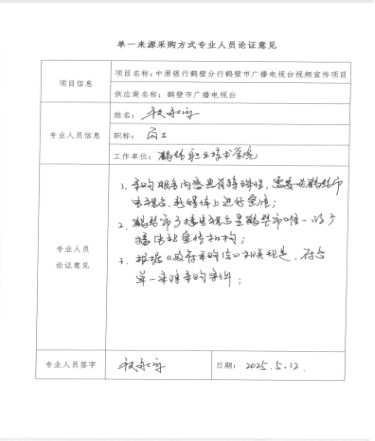 单一来源采购方式专业人员论证意见
项目信息
项目名称：中原银行鹤壁分行鹤壁市广播电视台视频宣传项目
供应商名称：鹤壁市广播电视台
专业人员信息
姓名：
职称：高工
工作单位：鹤壁职业技术学院
专业人员
论证意见
1、采购服务内容具有特殊性，需要在鹤壁市
电视台、新媒体上进行宣传；
2、鹤壁市广播电视台是鹤壁市唯一的广
播电视宣传机构；
3、根据《政府采购法》相关规定，符合
单一来源采购条件；
专业人员签字
日期：2025.5.12